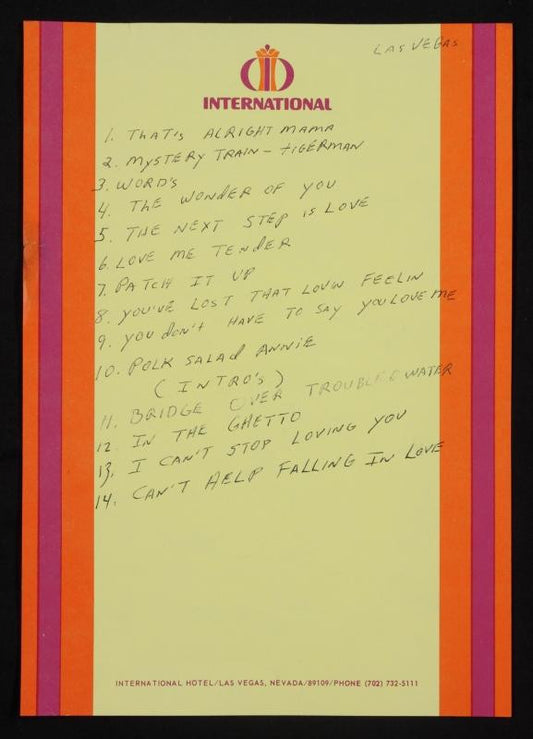 LAS VEGAS
INTERNATIONAL
1. THAT'S ALRIGHT MAMA
2. MYSTERY TRAIN - TIGERMAN
3. WORD'S
4. THE WONDER OF YOU
5. THE NEXT STEP IS LOVE
6. LOVE ME TENDER
7. PATCH IT UP
8. YOU'VE LOST THAT LOVIN FEELIN
9. YOU DON'T HAVE TO SAY YOU LOVE ME
10. POLK SALAD ANNIE
( INTRO'S )
11. BRIDGE OVER TROUBLED WATER
12. IN THE GHETTO
13. I CAN'T STOP LOVING YOU
14. CAN'T HELP FALLING IN LOVE
INTERNATIONAL HOTEL/LAS VEGAS, NEVADA/89109/PHONE (702) 732-5111